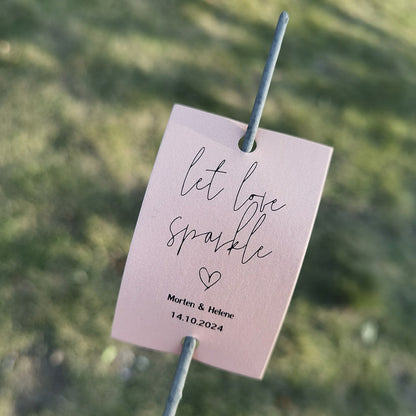 let love
sparkle
Morten & Helene
14.10.2024